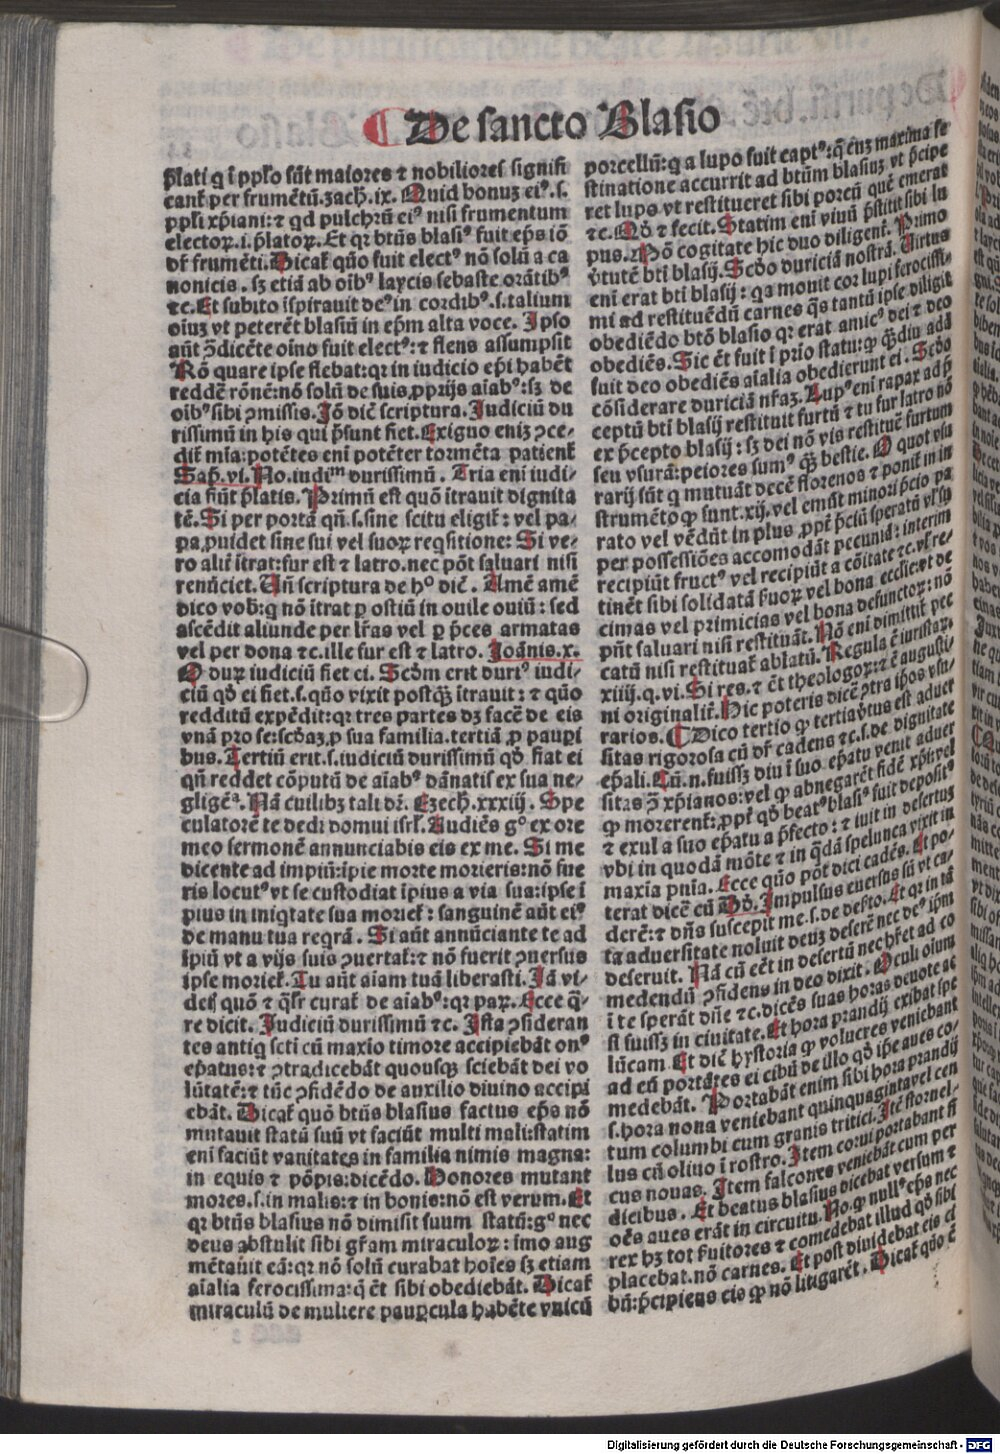 De sancto Blasio
p̄lati q ī pp̄lo sūt maiores ⁊ nobiliores signifi
cant̄ per frumētū.zach.ix. Quid bonuꝫ eiꝰ.s.
pp̄li xp̄iani:⁊ qd pulchrū eiꝰ nisi frumentum
electoꝝ.i.p̄latoꝝ. Et qꝛ btūs blasiꝰ fuit ep̄s iō
dr̄ frumēti. Dicat̄ quō fuit electꝰ nō solū a ca
nonicis. sꝫ etiā ab oibꝰ laycis sebaste orātibꝰ
⁊c. Et subito īspirauit deꝰ in cordibꝰ.s.talium
oīuꝫ vt peterēt blasiū in ep̄m alta voce. Ipso
aūt ꝯdicēte oīno fuit electꝰ:⁊ flens assumpsit
Rō quare ipse flebat:qꝛ in iudicio ep̄i habēt
reddē rōnē:nō solū de suis ꝓprijs aīabꝰ:sꝫ de
oibꝰ sibi ꝯmissis. Iō dic̄ scriptura. Iudiciū du
rissimū in his qui p̄sunt fiet. Exiguo enīꝫ ꝯce⸗
dit̄ mīa:potētes enī potēter tormēta patient̄
Sap̄.vi. No.iudiᵐ durissimū. Tria eni iudi⸗
cia fiūt p̄latis. Primū est quō ītrauit dignita
tē. Si per portā qn̄.s.sine scitu eligit̄: vel pa⸗
pa ꝓuidet sine sui vel suoꝝ reqsitione: Si ve⸗
ro alit̄ ītrat:fur est ⁊ latro.nec pōt saluari nisi
renūciet. Uñ scriptura de hᵒ dic̄. Amē amē
dico vob:q nō ītrat ꝑ ostiū in ouile ouiū: sed
ascēdit aliunde per lr̄as vel ꝑ p̄ces armatas
vel per dona ⁊c.ille fur est ⁊ latro. Ioānis.x.
O duꝝ iudiciū fiet ei. Scdm erit duriꝰ iudi⸗
ciū qd̄ ei fiet.s.quō vixit postq̄ꝫ ītrauit: ⁊ quō
redditū expēdit:qꝛ tres partes dꝫ facē de eis
vnā pro se:scdaꝫ ꝓ sua familia.tertiā ꝓ paupi
bus. Tertiū erit.s.iudiciū durissimū qd̄ fiat ei
qn̄ reddet cōputū de aīabꝰ dānatis ex sua ne⸗
gligēᵃ. Nā cuilibꝫ tali dr̄. Ezech.xxxiij. Spe
culatorē te dedi domui isrl̄. Audiēs gᵒ ex ore
meo sermonē annunciabis eis ex me. Si me
dicente ad impiū:īpie morte morieris:nō fue
ris locutꝰ vt se custodiat īpius a via sua:ipse ī
pius in iniqtate sua moriet̄: sanguinē aūt eiꝰ
de manu tua reqrā. Si aūt annūciante te ad
īpiū vt a vijs suis ꝯuertat̄:⁊ nō fuerit ꝯuersus
ipse moriet̄. Tu aūt aīam tuā liberasti. Iā vi⸗
des quō ⁊ q̄lr curat̄ de aīabꝰ:qꝛ paꝝ. Ecce q̄⸗
re dicit. Iudiciū durissimū ⁊c. Ista ꝯsideran
tes antiq scti cū maxio timore accipiebāt onꝰ
ep̄atus:⁊ ꝯtradicebāt quousqꝫ sciebāt dei vo
lūtatē:⁊ tūc ꝯfidēdo de auxilio diuino accipi
ebāt. Dicat̄ quō btūs blasius factus ep̄s nō
mutauit statū suū vt faciūt multi mali:statim
enī faciūt vanitates in familia nimis magna:
in equis ⁊ pōpis:dicēdo. Honores mutant
mores.s.in malis:⁊ in bonis:nō est verum. Et
qꝛ btūs blasius nō dimisit suum statū:gᵒ nec
deus abstulit sibi gr̄am miraculoꝝ: imo aug
mētauit eā:qꝛ nō solū curabat hoīes sꝫ etiam
aīalia ferocissima:q̄ ēt sibi obediebāt. Dicat̄
miraculū de muliere paupcula habēte vnicū
porcellū:q a lupo fuit captꝰ:q̄ cuꝫ maxima fe
stinatione accurrit ad btūm blasiuꝫ vt p̄cipe
ret lupo vt restitueret sibi porcū quē emerat
⁊c. Qd̄ ⁊ fecit. Statim eni viuū p̄stitit sibi lu
pus. Nō cogitate hic duo diligent̄. Primo
v̄tutē bti blasij. Scdo duriciā nostrā. Uirtus
eni erat bti blasij: qa monit cor lupi ferocissi⸗
mi ad restituēdū carnes q̄s tantū ipse diligit
obediēdo btō blasio qꝛ erat amicꝰ dei ⁊ deo
obediēs. Sic ēt fuit ī prīo statu:ꝙ q̄ꝫdiu adā
fuit deo obediēs aīalia obedierunt ei. Scdo
cōsiderare duriciā nr̄aꝫ. Lupꝰ enī rapax ad p̄
ceptū bti blasij restituit furtū ⁊ tu fur latro nō
ex p̄cepto blasij: sꝫ dei nō vis restituē furtum
seu vsurā:peiores sumꝰ q̄ꝫ bestie. O quot vsu
rarij sūt q mutuāt decē florenos ⁊ ponit̄ in in
strumēto ꝙ sunt.xij.vel emūt minori p̄cio pa
rato vel vēdūt in plus ꝓpt̄ p̄ciū speratū vl̄ sup
per possessiōes accomodāt pecuniā: interim
recipiūt fructꝰ vel recipiūt a cōitate ⁊c.vl̄ re⸗
tinēt sibi solidatā f̄uoꝝ vel bona ecclīe:vt de
cimas vel primicias vel bona defunctoꝝ: nō
pn̄t saluari nisi restituāt. Nō eni dimittit̄ pec
catū nisi restituat̄ ablatū. Regula ē iuristaꝝ.
xiiij.q.vi. Si res. ⁊ ēt theologoꝝ:⁊ ē augusti⸗
ni originalit̄. Hic poteris dicē ꝯtra ip̄os vsu⸗
rarios. Dico tertio ꝙ tertiav̄tus est aduer
sitas rigorosa cū dr̄ cadens ⁊c.s.de dignitate
ep̄ali. Cū.n.fuissꝫ diu ī suo ep̄atu venit aduer
sitas ꝯ̄ xp̄ianos:vel ꝙ abnegarēt fidē xp̄i:vel
ꝙ morerent̄:ꝓpt̄ qd̄ beatꝰ blasiꝰ fuit depositꝰ
⁊ exul a suo ep̄atu a p̄fecto: ⁊ iuit in desertuꝫ
vbi in quodā mōte ⁊ in q̄dā spelunca vixit in
maxīa pnīa. Ecce quō pōt dici cadēs. Et po⸗
terat dicē cū Dd̄. Impulsus euersus sū vt ca⸗
derē:⁊ dn̄s suscepit me.s.de defto. Et qꝛ in tā
ta aduersitate noluit deuꝫ deserē nec deꝰ ip̄m
deseruit. Nā cū eēt in desertū nec hr̄et ad co
medendū ꝯfidens in deo dixit. Oculi oium
ī te sperāt dn̄e ⁊c.dicēs suas horas deuote ac
si fuissꝫ in ciuitate. Et hora prandij exibat spe
lūcam. Et dic̄ hystoria ꝙ volucres veniebant
ad eū portātes ei cibū de illo qd̄ ip̄e aues co⸗
medebāt. Portabāt enim sibi hora prandij
s.hora nona veniebant quinquagintavel cen
tum columbi cum granis tritici. Itē stornel⸗
lus cū oliuo ī rostro. Item corui portabant fi
cus nouas. Item falcones veniebāt cum per
dicibus. Et beatus blasius dicebat versum ⁊
oēs aues erāt in circuitu. No.ꝙ nullꝰ ep̄s nec
rex hꝫ tot f̄uitores ⁊ comedebat illud qd̄ sibi
placebat.nō carnes. Et post diuidebat eis ci
bū:p̄cipiens eis ꝙ nō litigarēt. Dicat̄ quō ē
Digitalisierung gefördert durch die Deutsche Forschungsgemeinschaft - DFG